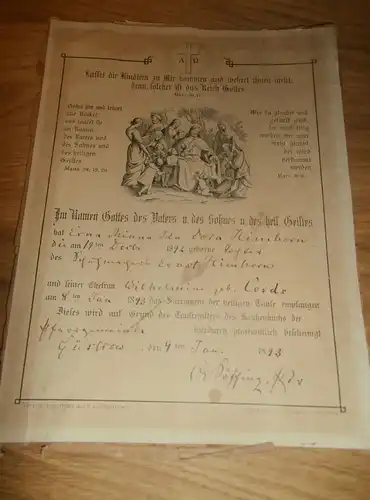 A Ω
Lasset die Kindlein zu Mir kommen und wehret ihnen nicht,
denn solcher ist das Reich Gottes
Gehet hin und lehret
alle Völker
und taufet sie
im Namen
des Vaters und
des Sohnes und
des heiligen
Geistes
Matth. 28, 19. 20
Wer da glaubet und
getauft wird,
der wird selig
werden, wer aber
nicht glaubet
der wird
verdammet
werden
Marc. 16, 16.
Im Namen Gottes des Vaters u. des Sohnes u. des heil. Geistes
hat Erna Minna Ida Dora Kirnborn
die am 18ten Decbr 1892 geborne Tochter
des Ernst Kirnborn
und seiner Ehefrau Wilhelmine geb. Cords
am 8ten Jan 1893 das Sacrament der heiligen Taufe empfangen
Dieses wird auf Grund des Taufregisters des Kirchenbuches der
Pfarrgemeinde hierdurch pfarramtlich bescheinigt
Güstrow, den Jan 1893